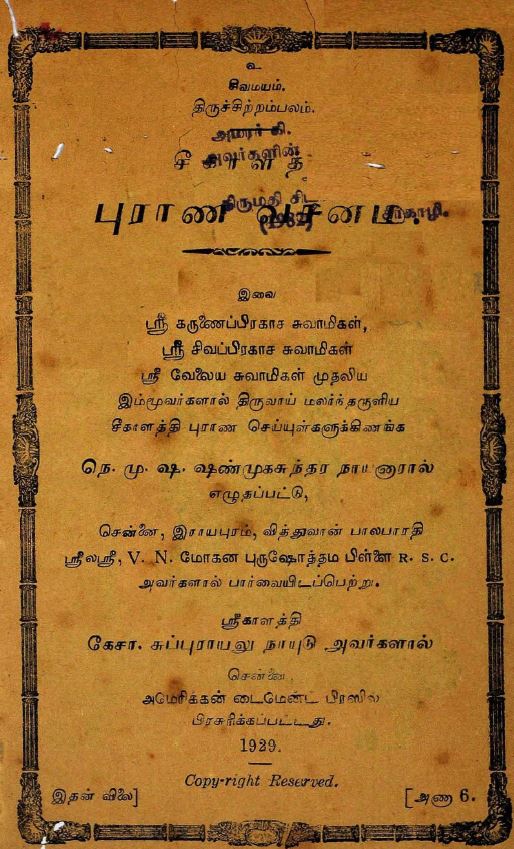 உ
சிவமயம்.
திருச்சிற்றம்பலம்.
அமரர் கி.
அவர்களின்
சீகாளத்தி
திருமதி
சீர்காழி.
புராண வசனம்.
இவை
ஸ்ரீ கருணைப்பிரகாச சுவாமிகள்,
ஸ்ரீ சிவப்பிரகாச சுவாமிகள்
ஸ்ரீ வேலைய சுவாமிகள் முதலிய
இம்மூவர்களால் திருவாய் மலர்ந்தருளிய
சீகாளத்தி புராண செய்யுள்களுக்கிணங்க
நெ. மு. ஷ. ஷண்முகசுந்தர நாயனாரால்
எழுதப்பட்டு,
சென்னை, இராயபுரம், வித்துவான் பாலபாரதி
ஸ்ரீலஸ்ரீ, V. N. மோகன புருஷோத்தம பிள்ளை R. S. C.
அவர்களால் பார்வையிடப்பெற்று.
ஸ்ரீகாளத்தி
கேசா. சுப்புராயலு நாயுடு அவர்களால்
சென்னை,
அமேரிக்கன் டைமென்ட் பிரஸில்
பிரசுரிக்கப்பட்டது.
1929.
Copy-right Reserved.
இதன் விலை] [அணா 6.